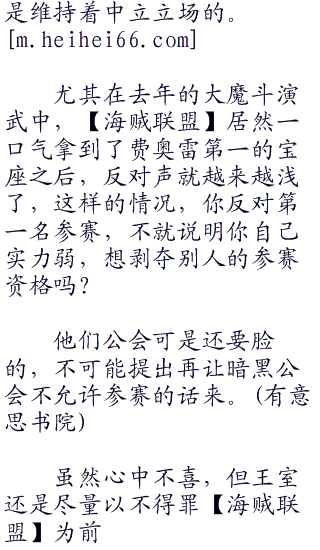 是维持着中立立场的。
[m.heihei66.com]
尤其在去年的大魔斗演
武中，【海贼联盟】居然一
口气拿到了费奥雷第一的宝
座之后，反对声就越来越浅
了，这样的情况，你反对第
一名参赛，不就说明你自己
实力弱，想剥夺别人的参赛
资格吗？
他们公会可是还要脸
的，不可能提出再让暗黑公
会不允许参赛的话来。(有意
思书院)
虽然心中不喜，但王室
还是尽量以不得罪【海贼联
盟】为前